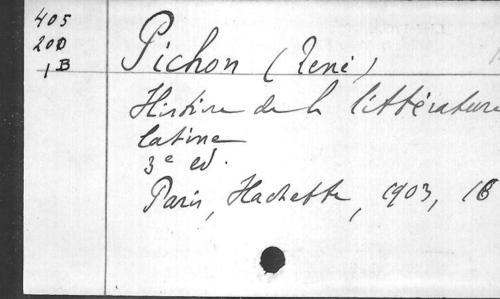 405
200
1B
Pichon (René)
Histoire de la littérature
latine
3e ed.
Paris, Hachette, 1903, 18